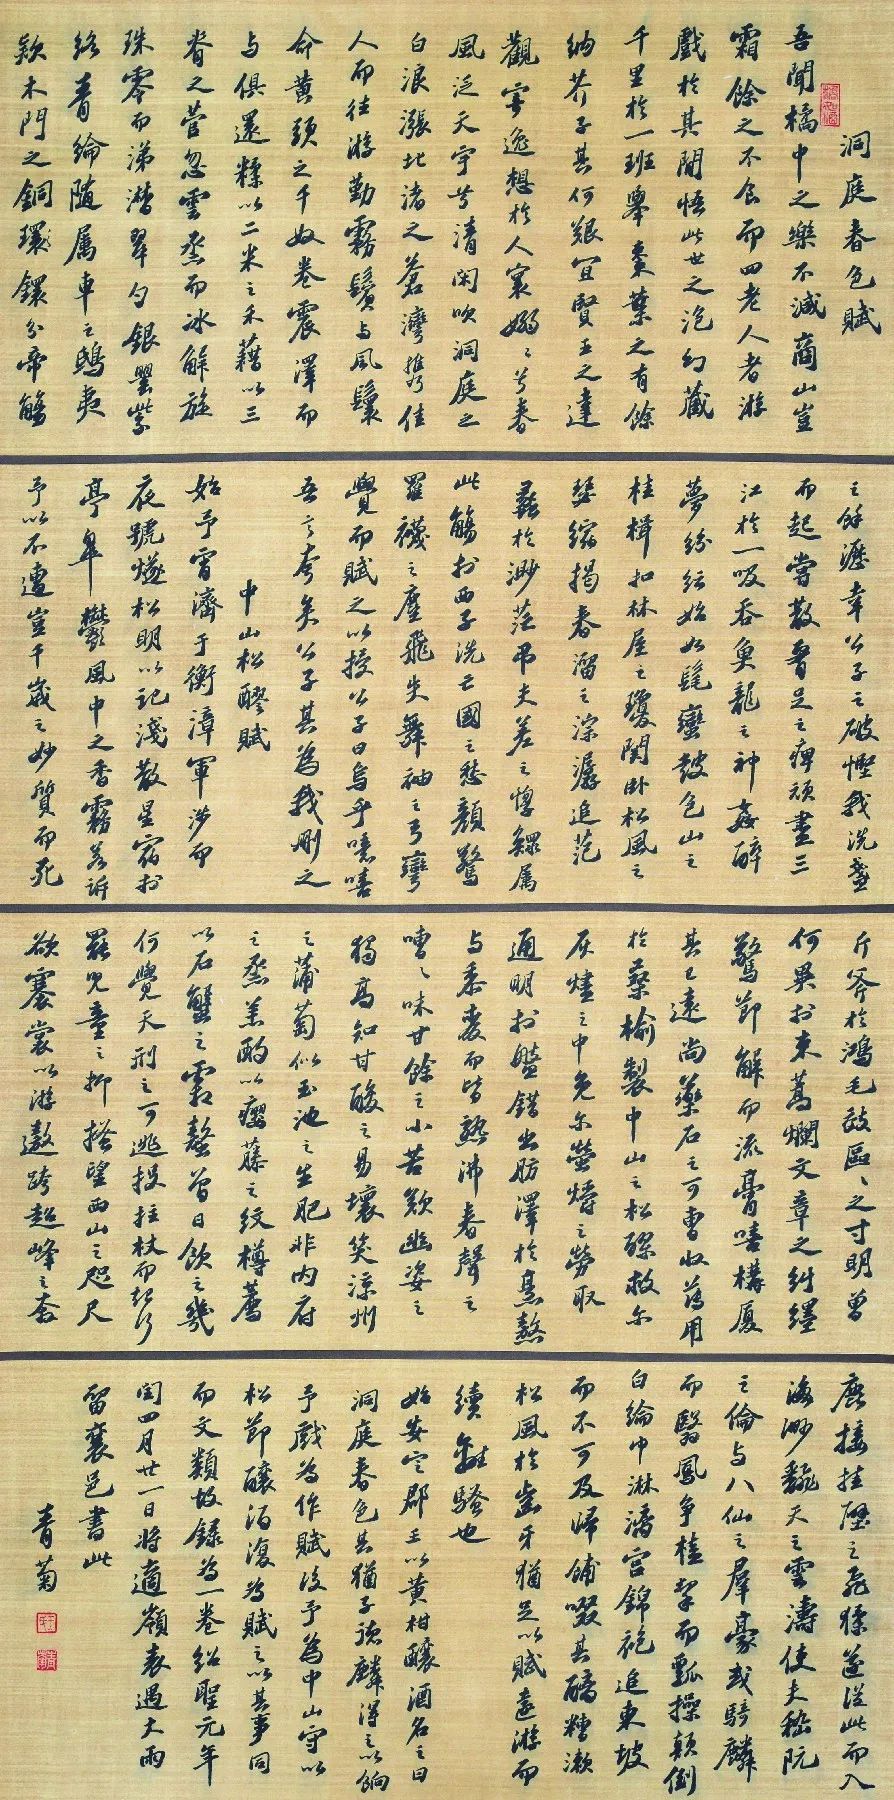 洞庭春色賦
吾聞橘中之樂不減商山豈
霜餘之不食而四老人者游
戲於其間悟此世之泡幻藏
千里於一班舉棗葉之有餘
納芥子其何艱宜賢王之達
觀寄逸想於人寰嫋〻兮春
風泛天宇兮清閑吹洞庭之
白浪漲北渚之蒼灣攜佳
人而往游勤霧鬢与風鬟
命黄頭之千奴卷震澤而
与俱還糅以二米之禾藉以三
脊之菅忽雲蒸而冰解旋
珠零而涕潸翠勺銀罌紫
絡青綸隨属車之鴟夷
款木門之銅環鐶分帝觴
之餘瀝幸公子之破慳我洗盞
而起嘗散腰足之痺頑盡三
江於一吸吞魚龍之神姦醉
夢紛紜始如髦蠻鼓包山之
桂楫扣林屋之瓊関卧松風之
瑟縮揭春溜之淙潺追范
蠡於渺茫弔夫差之惸鰥属
此觴於西子洗亡國之愁顏驚
羅襪之塵飛失舞袖之弓彎
覺而賦之以授公子曰烏乎噫嘻
吾言夸矣公子其為我刪之
中山松醪賦
始予宵濟于衡漳軍涉而
夜號燧松明以記淺散星宿於
亭皋鬱風中之香霧若訴
予以不遭豈千歲之妙質而死
斤斧於鴻毛效區〻之寸明曾
何異於束蒿爛文章之糾纏
驚節解而流膏嘻構厦
其已遠尚藥石之可曹收薄用
於桑榆製中山之松醪救尔
灰燼之中免尔螢爝之勞取
通明於盤錯出肪澤於烹熬
与黍麥而皆熟沸春聲之
嘈〻味甘餘之小苦歎幽姿之
獨高知甘酸之易壞笑涼州
之蒲萄似玉池之生肥非内府
之蒸羔酌以癭藤之紋樽薦
以石蟹之霜螯曾日飲之幾
何覺天刑之可逃投拄杖而起行
罷兒童之抑搔望西山之咫尺
欲褰裳以游遨跨超峰之奔
鹿接挂壁之飛猱遂從此而入
海渺翻天之雲濤使夫嵇阮
之倫与八仙之羣豪或騎麟
而翳鳳争榼挈而瓢操顛倒
白綸巾淋漓宫錦袍追東坡
而不可及歸餔啜其醨糟漱
松風於齒牙猶足以賦遠游而
續離騷也
始安定郡王以黄柑釀酒名之曰
洞庭春色其猶子德麟得之以餉
予戲為作賦後予為中山守以
松節釀酒復為賦之以其事同
而文類故録為一卷紹聖元年
閏四月廿一日將適嶺表遇大雨
留襄邑書此
青菊